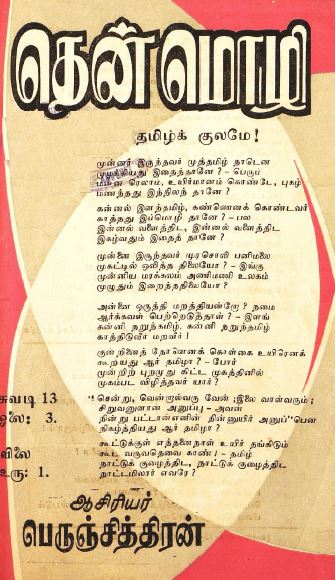 தென்மொழி
தமிழ்க் குலமே!
முன்னர் இருந்தவர் முத்தமிழ் நாடென
முழங்கியது இதைத்தானே? – பெரும்
ரெலாம், உயிர்மானம் கொண்டே, புகழ்
மணந்தது இந்நிலந் தானே?
கன்னல் இளந்தமிழ், கண்ணெனக் கொண்டவர்
காத்தது இம்மொழி தானே? – பல
இன்னல் வளைத்திட, இன்னல் வளைத்திட
இகழ்வதும் இதைத் தானே?
முன்னை இருந்தவர் முரசொலி பனிமலை
முகட்டில் ஒலித்த திலையோ? – இங்கு
முன்னிய மரக்கலம் அணிமணி உலகம்
முழுதும் இறைத்ததிலையோ?
அன்னை ஒருத்தி மறத்தியன்றோ? நமை
ஆர்க்கவள் பெற்றெடுத்தாள்? – இளங்
கன்னி நறுந்தமிழ், கன்னி நறுந்தமிழ்
காத்திடுவீர் மறவீர்!
குன்றினைத் தோளெனக் கொள்கை உயிரெனக்
கூறியது ஆர் தமிழா? – போர்
முன்றிற் புறமுது கிட்ட முகத்தினில்
முகம்பட விழித்தவர் யார்?
“சென்று, வென்றுல்வரு வேன்; இலை வாள்வரும்;
சிறுவனுளான் அனுப்பு – அவன்
நின்று பட்டான்எனின் நின்னுயிர் அனுப்”பென
நிகழ்த்தியது ஆர் தமிழா?
கூட்டுக்குள் எத்தனைநாள் உயிர் தங்கிடும்
கூட வருவதெவை காண்! – தமிழ்
நாட்டுக் குழைத்திட, நாட்டுக் குழைத்திட
நாட்டமிலார் எவரே?
சுவடி 13
ஓலை: 3.
விலை
உரு: 1.
ஆசிரியர்
பெருஞ்சித்திரன்